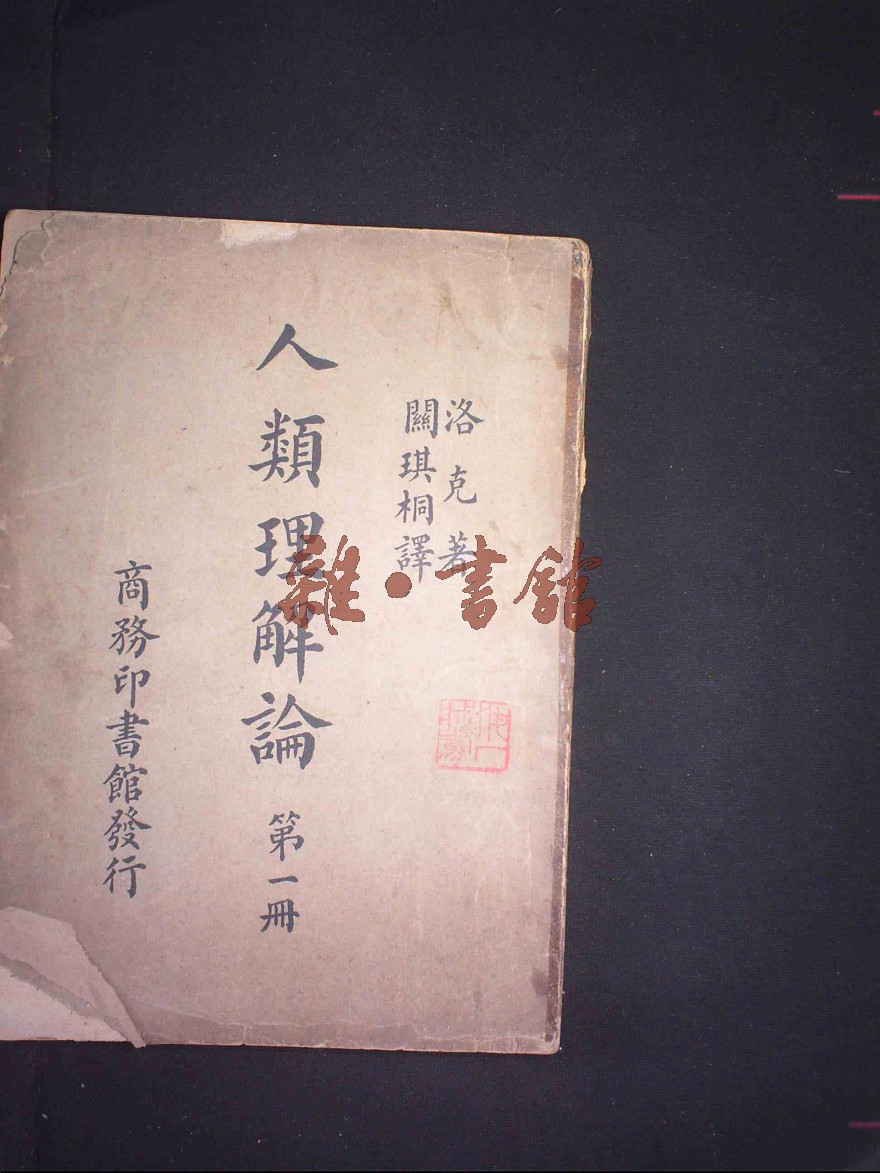 洛克著
關琪桐譯
人類理解論 第一冊
商務印書館發行
雜·書館